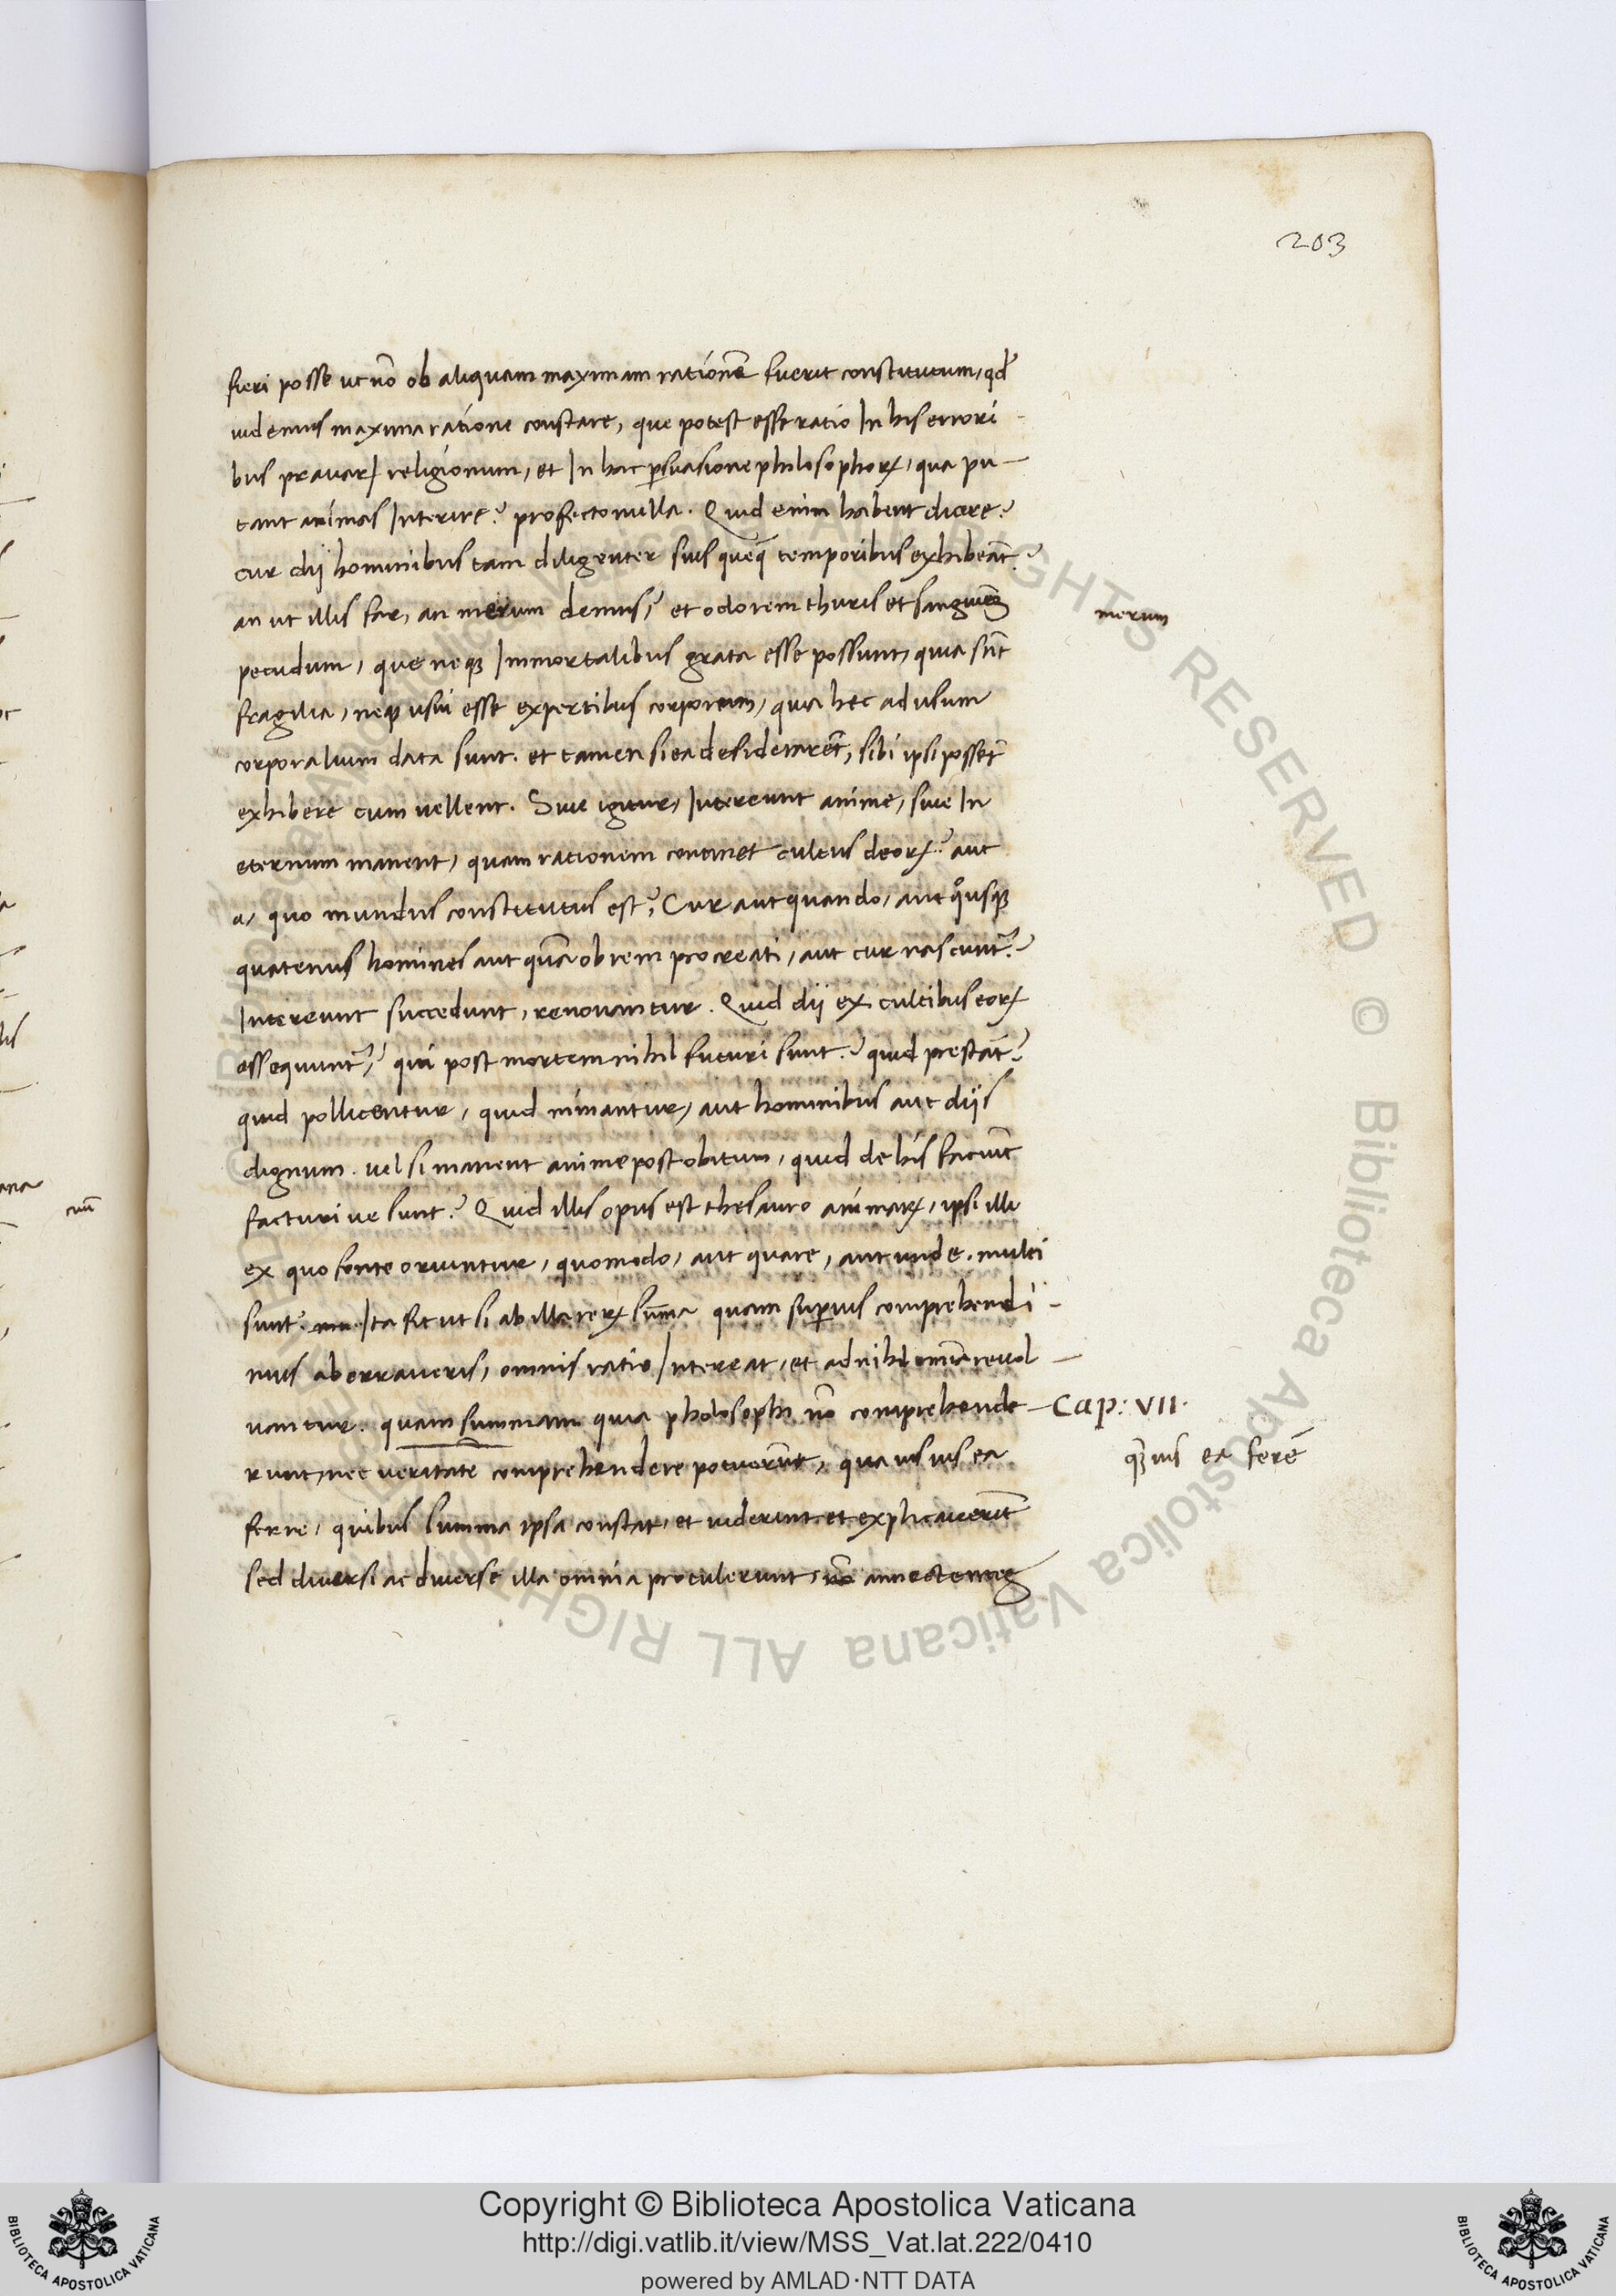 203
fieri posse ut nō ob aliquam maximam rationē fuerit constitutum, qđ
uidemus maxima ratione constare, que potest esse ratio In his errori
bus prauaꝝ religionum, et In hac ꝑsuasione philosophoꝝ, qua pu-
tant animas Interire? profecto nulla. Quid enim habent dicere?
cur dij hominibus tam diligenter suis queqȝ temporibus exhibeāt?
an ut illis far, an merum demus? et odorem thuris et sanguinē
merum
pecudum, que neqȝ Immortalibus grata esse possunt, quia sūt
fragilia, neqȝ usui esse expertibus corporum, quia hec ad usum
corporalium data sunt. et tamen si ea desiderarēt, sibi ipsi possēt
exhibere cum uellent. Siue igitur, Intereunt anime, siue In
eternum manent, quam rationem continet cultus deoꝝ? aut
a, quo mundus constitutus est? Cur aut quando, aut q°usqȝ
quatenus homines aut quā ob rem procreati, aut cur nascunt̄?
Intereunt succedunt, renouantur. Quid dij ex cultibus eoꝝ
assequunt̄? qui post mortem nihil futuri sunt? quid prestāt?
quid pollicentur, quid minantur, aut hominibus aut dijs
dignum. uel si manent anime post obitum, quid de his faciūt
facturi ue sunt? Quid illis opus est thesauro animaꝝ, ipsi illi
ex quo fonte oriuntur, quomodo, aut quare, aut unde. multi
sunt? Ita fit ut si ab illa reꝝ sūma quam suꝑius comprehendi-
mus aberraueris, omnis ratio Intereat, et ad nihil omīa reuol-
uantur. quam summam quia pholosophi nō comprehende-
Cap: VII.
runt, nec ueritatē comprehendere potuerūt, quauis uis ea
qȝuis ea ferē
ferre, quibus summa ipsa constat, et uiderint et explicauerīt
sed diuersi ac diuerse illa omnia protulerunt, nō annectentes
Copyright © Biblioteca Apostolica Vaticana
http://digi.vatlib.it/view/MSS_Vat.lat.222/0410
powered by AMLAD·NTT DATA